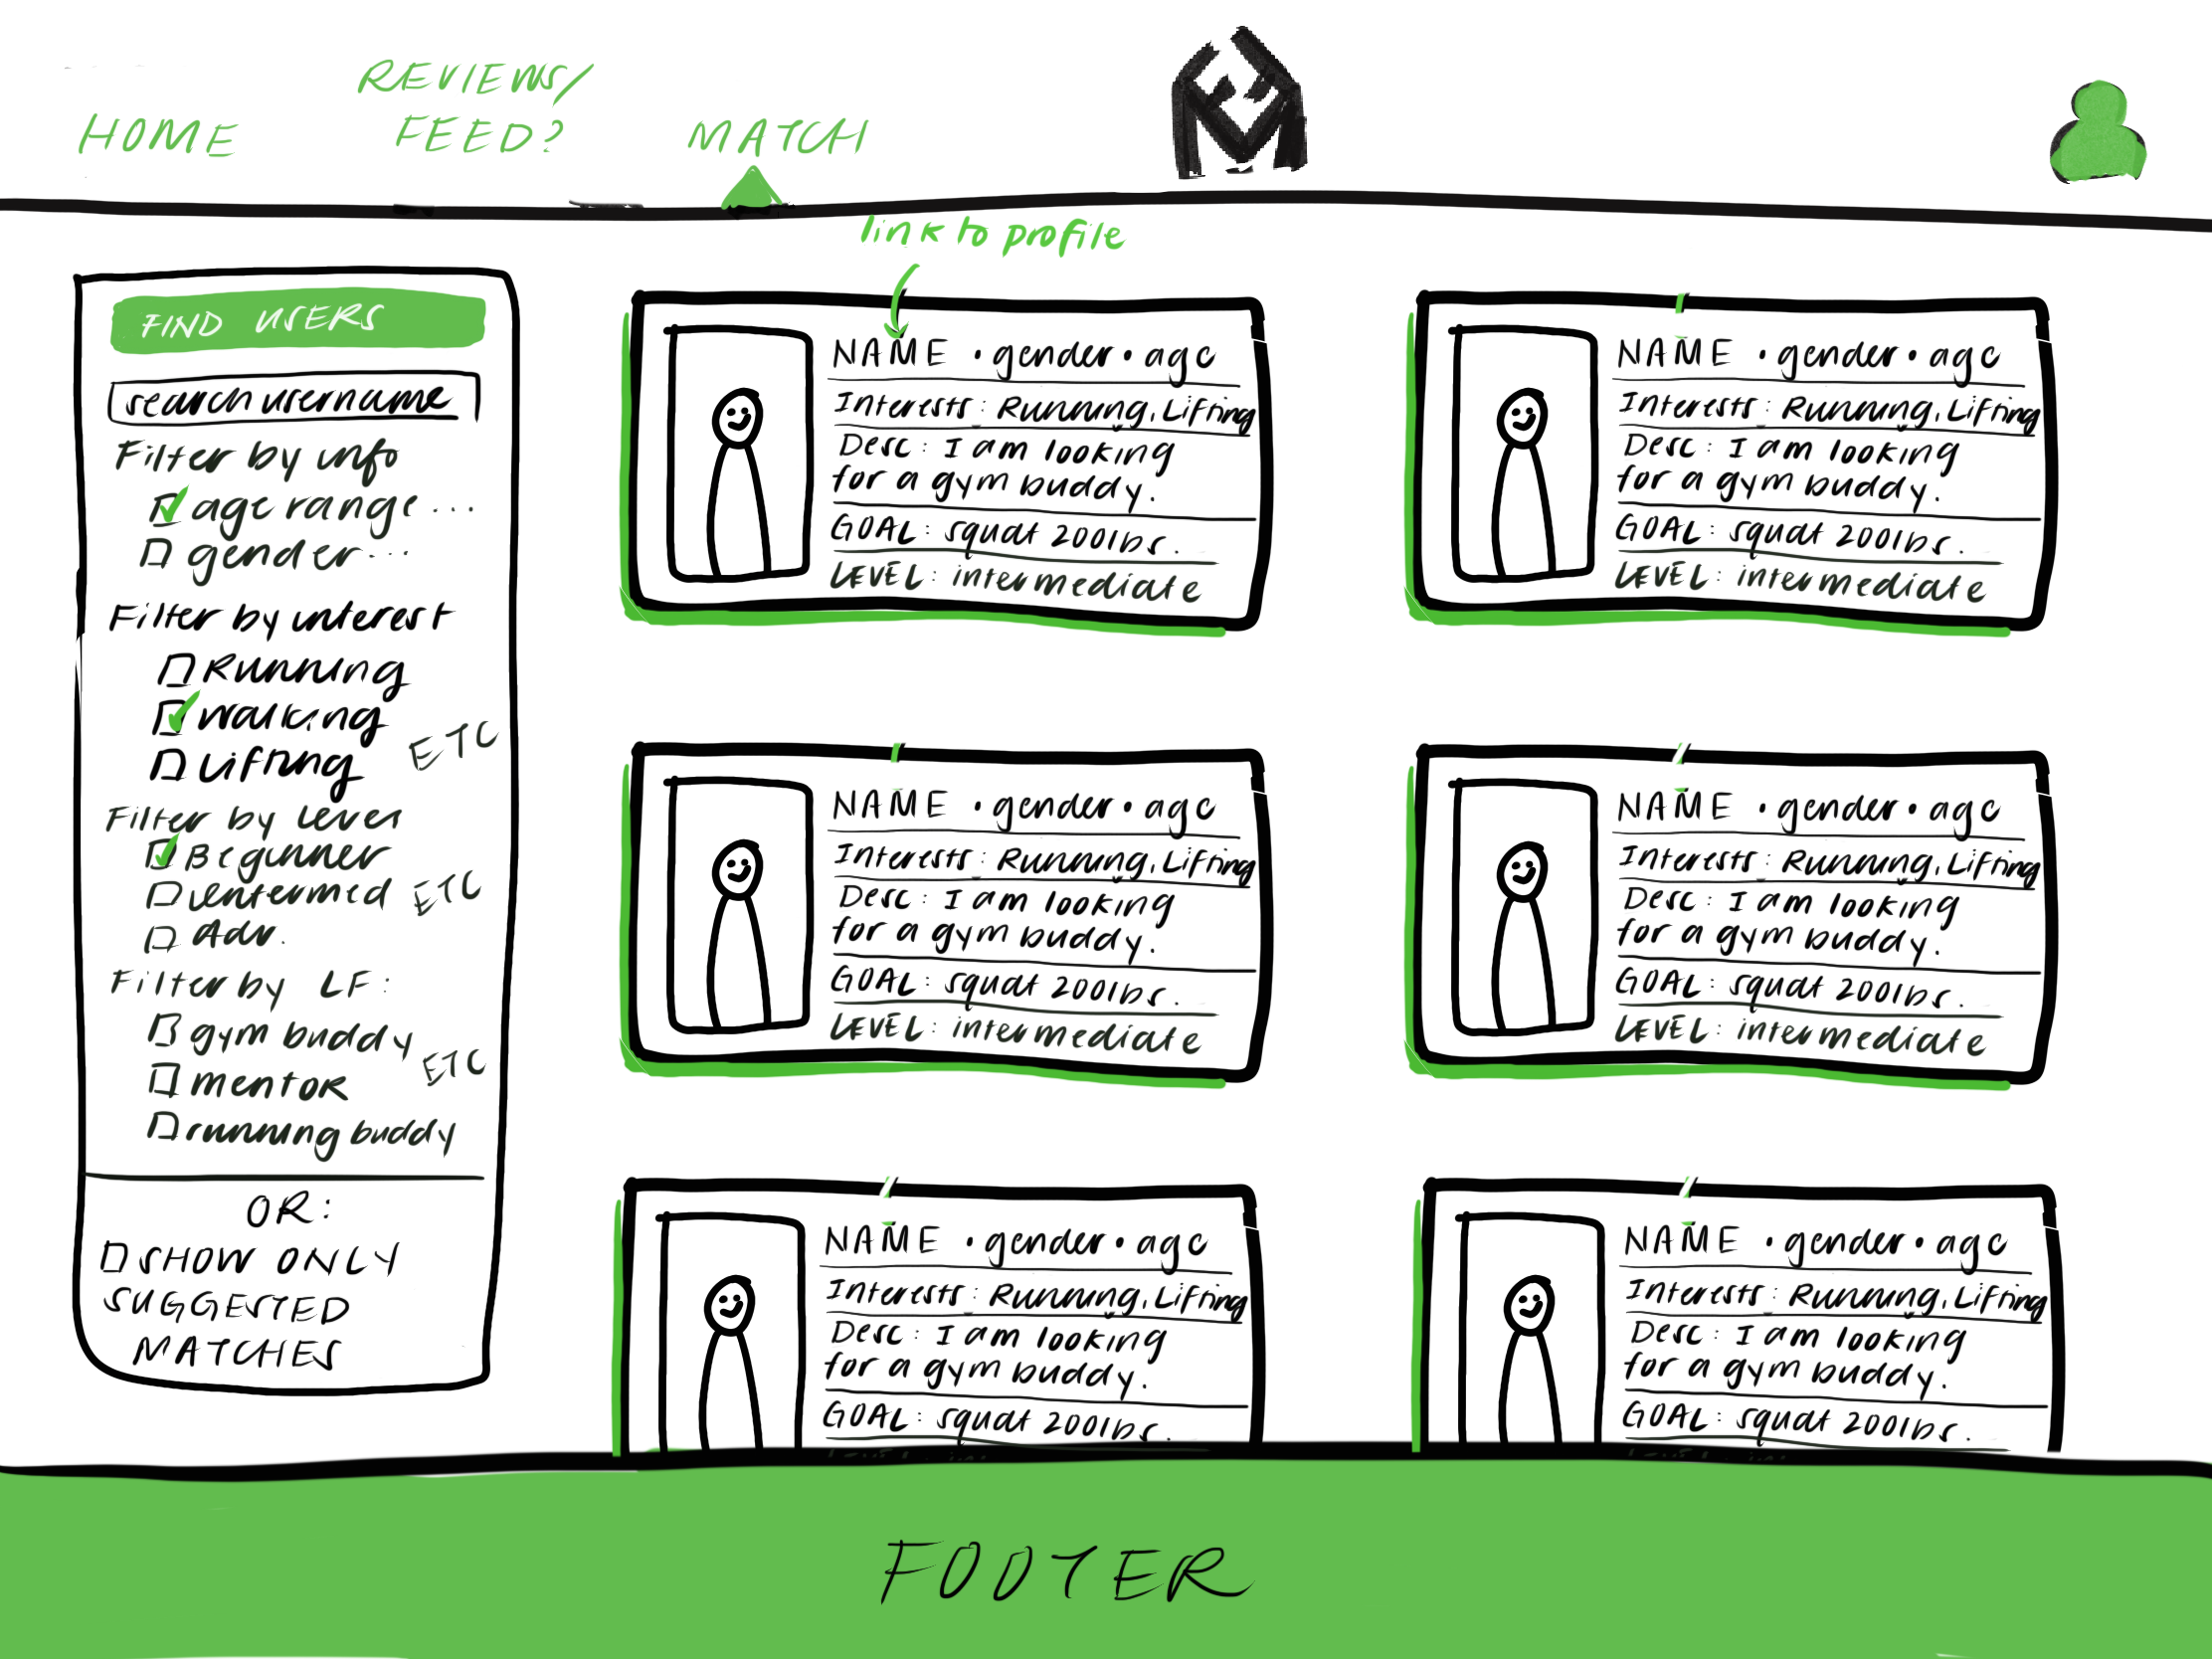 HOME
REVIEWS/
FEED?
MATCH
link to profile
FIND USERS
search username
Filter by info
age range...
gender...
Filter by interest
Running
Walking
Lifting
ETC
Filter by level
Beginner
intermed
ETC
Adv.
Filter by LF:
gym buddy
ETC
mentor
running buddy
OR:
SHOW ONLY
SUGGESTED
MATCHES
NAME • gender • age
Interests: Running, Lifting
Desc: I am looking
for a gym buddy.
GOAL: squat 200lbs.
LEVEL: intermediate
NAME • gender • age
Interests: Running, Lifting
Desc: I am looking
for a gym buddy.
GOAL: squat 200lbs.
LEVEL: intermediate
NAME • gender • age
Interests: Running, Lifting
Desc: I am looking
for a gym buddy.
GOAL: squat 200lbs.
LEVEL: intermediate
NAME • gender • age
Interests: Running, Lifting
Desc: I am looking
for a gym buddy.
GOAL: squat 200lbs.
LEVEL: intermediate
NAME • gender • age
Interests: Running, Lifting
Desc: I am looking
for a gym buddy.
GOAL: squat 200lbs.
NAME • gender • age
Interests: Running, Lifting
Desc: I am looking
for a gym buddy.
GOAL: squat 200lbs.
FOOTER